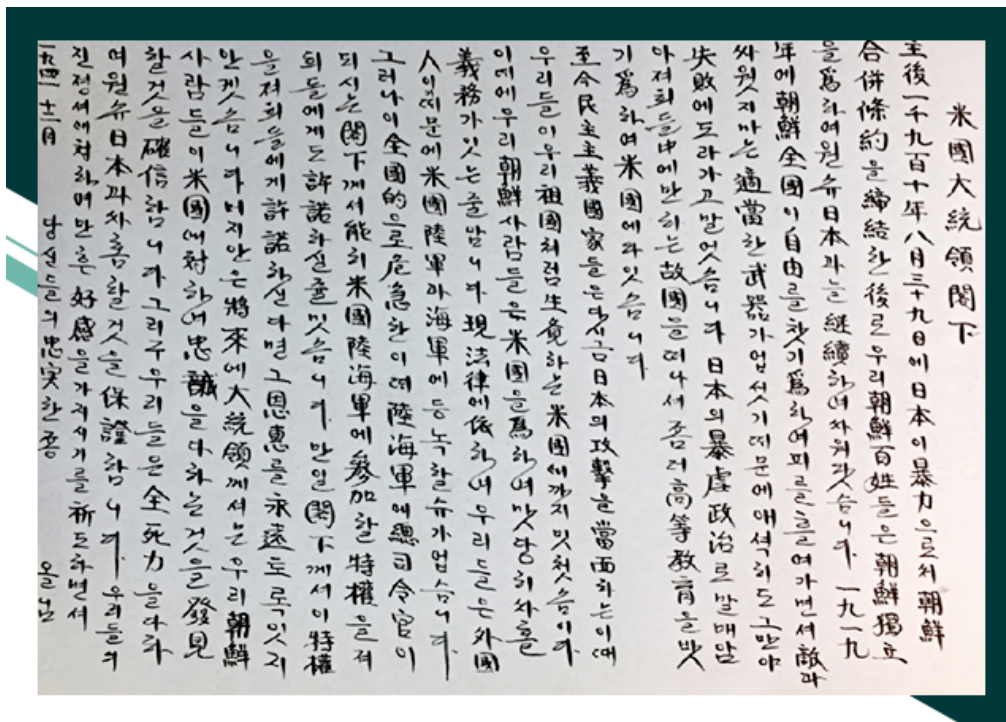 米國大統領閣下
主後一千九百十年八月二十九日에日本이暴力으로써朝鮮
合併條約을締結한後로우리朝鮮百姓들은朝鮮獨立
을爲하여원슈日本과늘継續하여싸워왓슴니다. 一九一九
年에朝鮮全國이自由를찻기爲하여피를흘여가면셔敵과
싸웟지마는適當한武器가업섯기떼문에애석히도그만야
失敗에도라가고말엇슴니다 日本의暴虐政治로말매암
아져희들中에만하는故國을떠나셔좀더高等敎育을밧
기爲하여米國에와잇슴니다
至今民主主義國家들은다시금日本의攻擊을當面하는이때
우리들이우리祖國처럼生覺하는米國에까지밋첫슴이다.
이떼에우리朝鮮사람들은米國을爲하여맛당히싸홀
義務가잇는줄암니다現法律에依하여우리들은外國
人이떼문에米國陸軍과海軍에등녹할슈가업슴니다.
그러나이全國的으로危急한이떼陸海軍에總司令官이
되시는閣下께셔能히米國陸海軍에參加할特權을져
희들에게도許諾하실줄밋슴니다. 만일閣下께서이特權
을져희들에게許諾하신다면그恩惠를永遠토록잇지
안켓슴니다머지안은將來에大統領께셔는우리朝鮮
사람들이米國에対하여忠誠을다하는것을發見
할것을確信함니다그리구우리들은全死力을다하
여원슈日本과싸홈할것을保證함니다. 우리들의
진정셔에対하여만흔好感을가지시기를祈도하면셔
一九四一十二月 당신들의忠実한종 올님